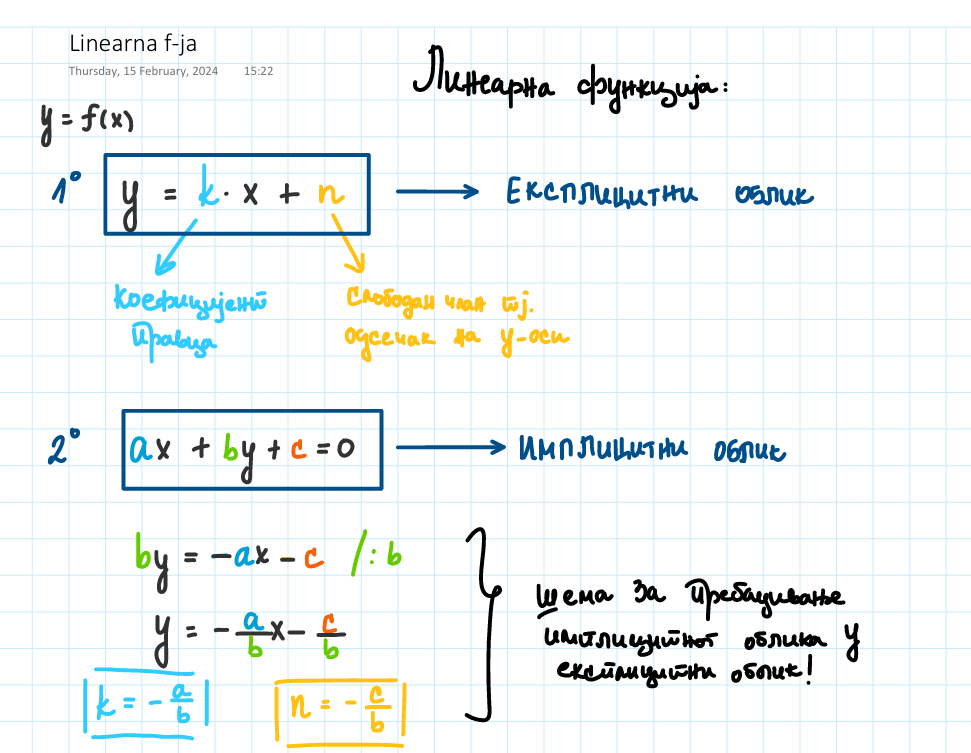 Linearna f-ja
Thursday, 15 February, 2024 15:22
Линеарна функција:
y = f(x)
1° y = k · x + n → ЕКСПЛИЦИТНИ ОБЛИК
Коефицијент
правца
Слободан члан тј.
одсечак на y-оси
2° ax + by + c = 0 → ИМПЛИЦИТНИ ОБЛИК
by = -ax - c /: b
y = - a/b x - c/b
k = - a/b
n = - c/b
Шема за пребацивање
имплицитног облика у
експлицитни облик!